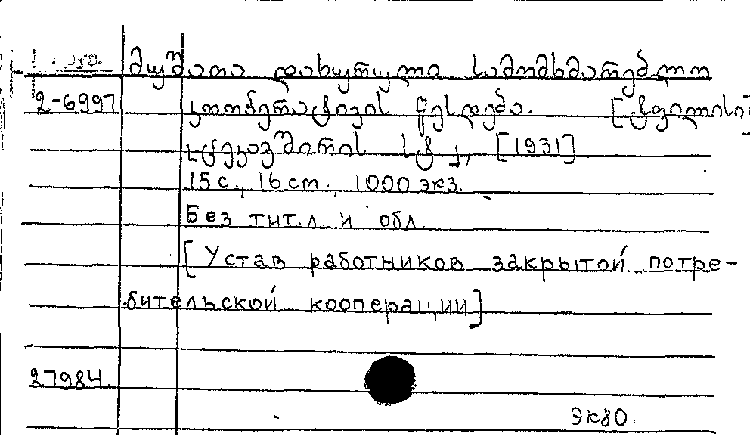 მუშათა დახურული სამომხმარებლო
2-6997 კოოპერატივის წესდება. [ტფილისი]
სტ., [1931]
15 с., 16 см, 1000 экз.
Без тит. л. и обл.
[Устав работников закрытой потре-
бительской кооперации]
27984.
Эк80.